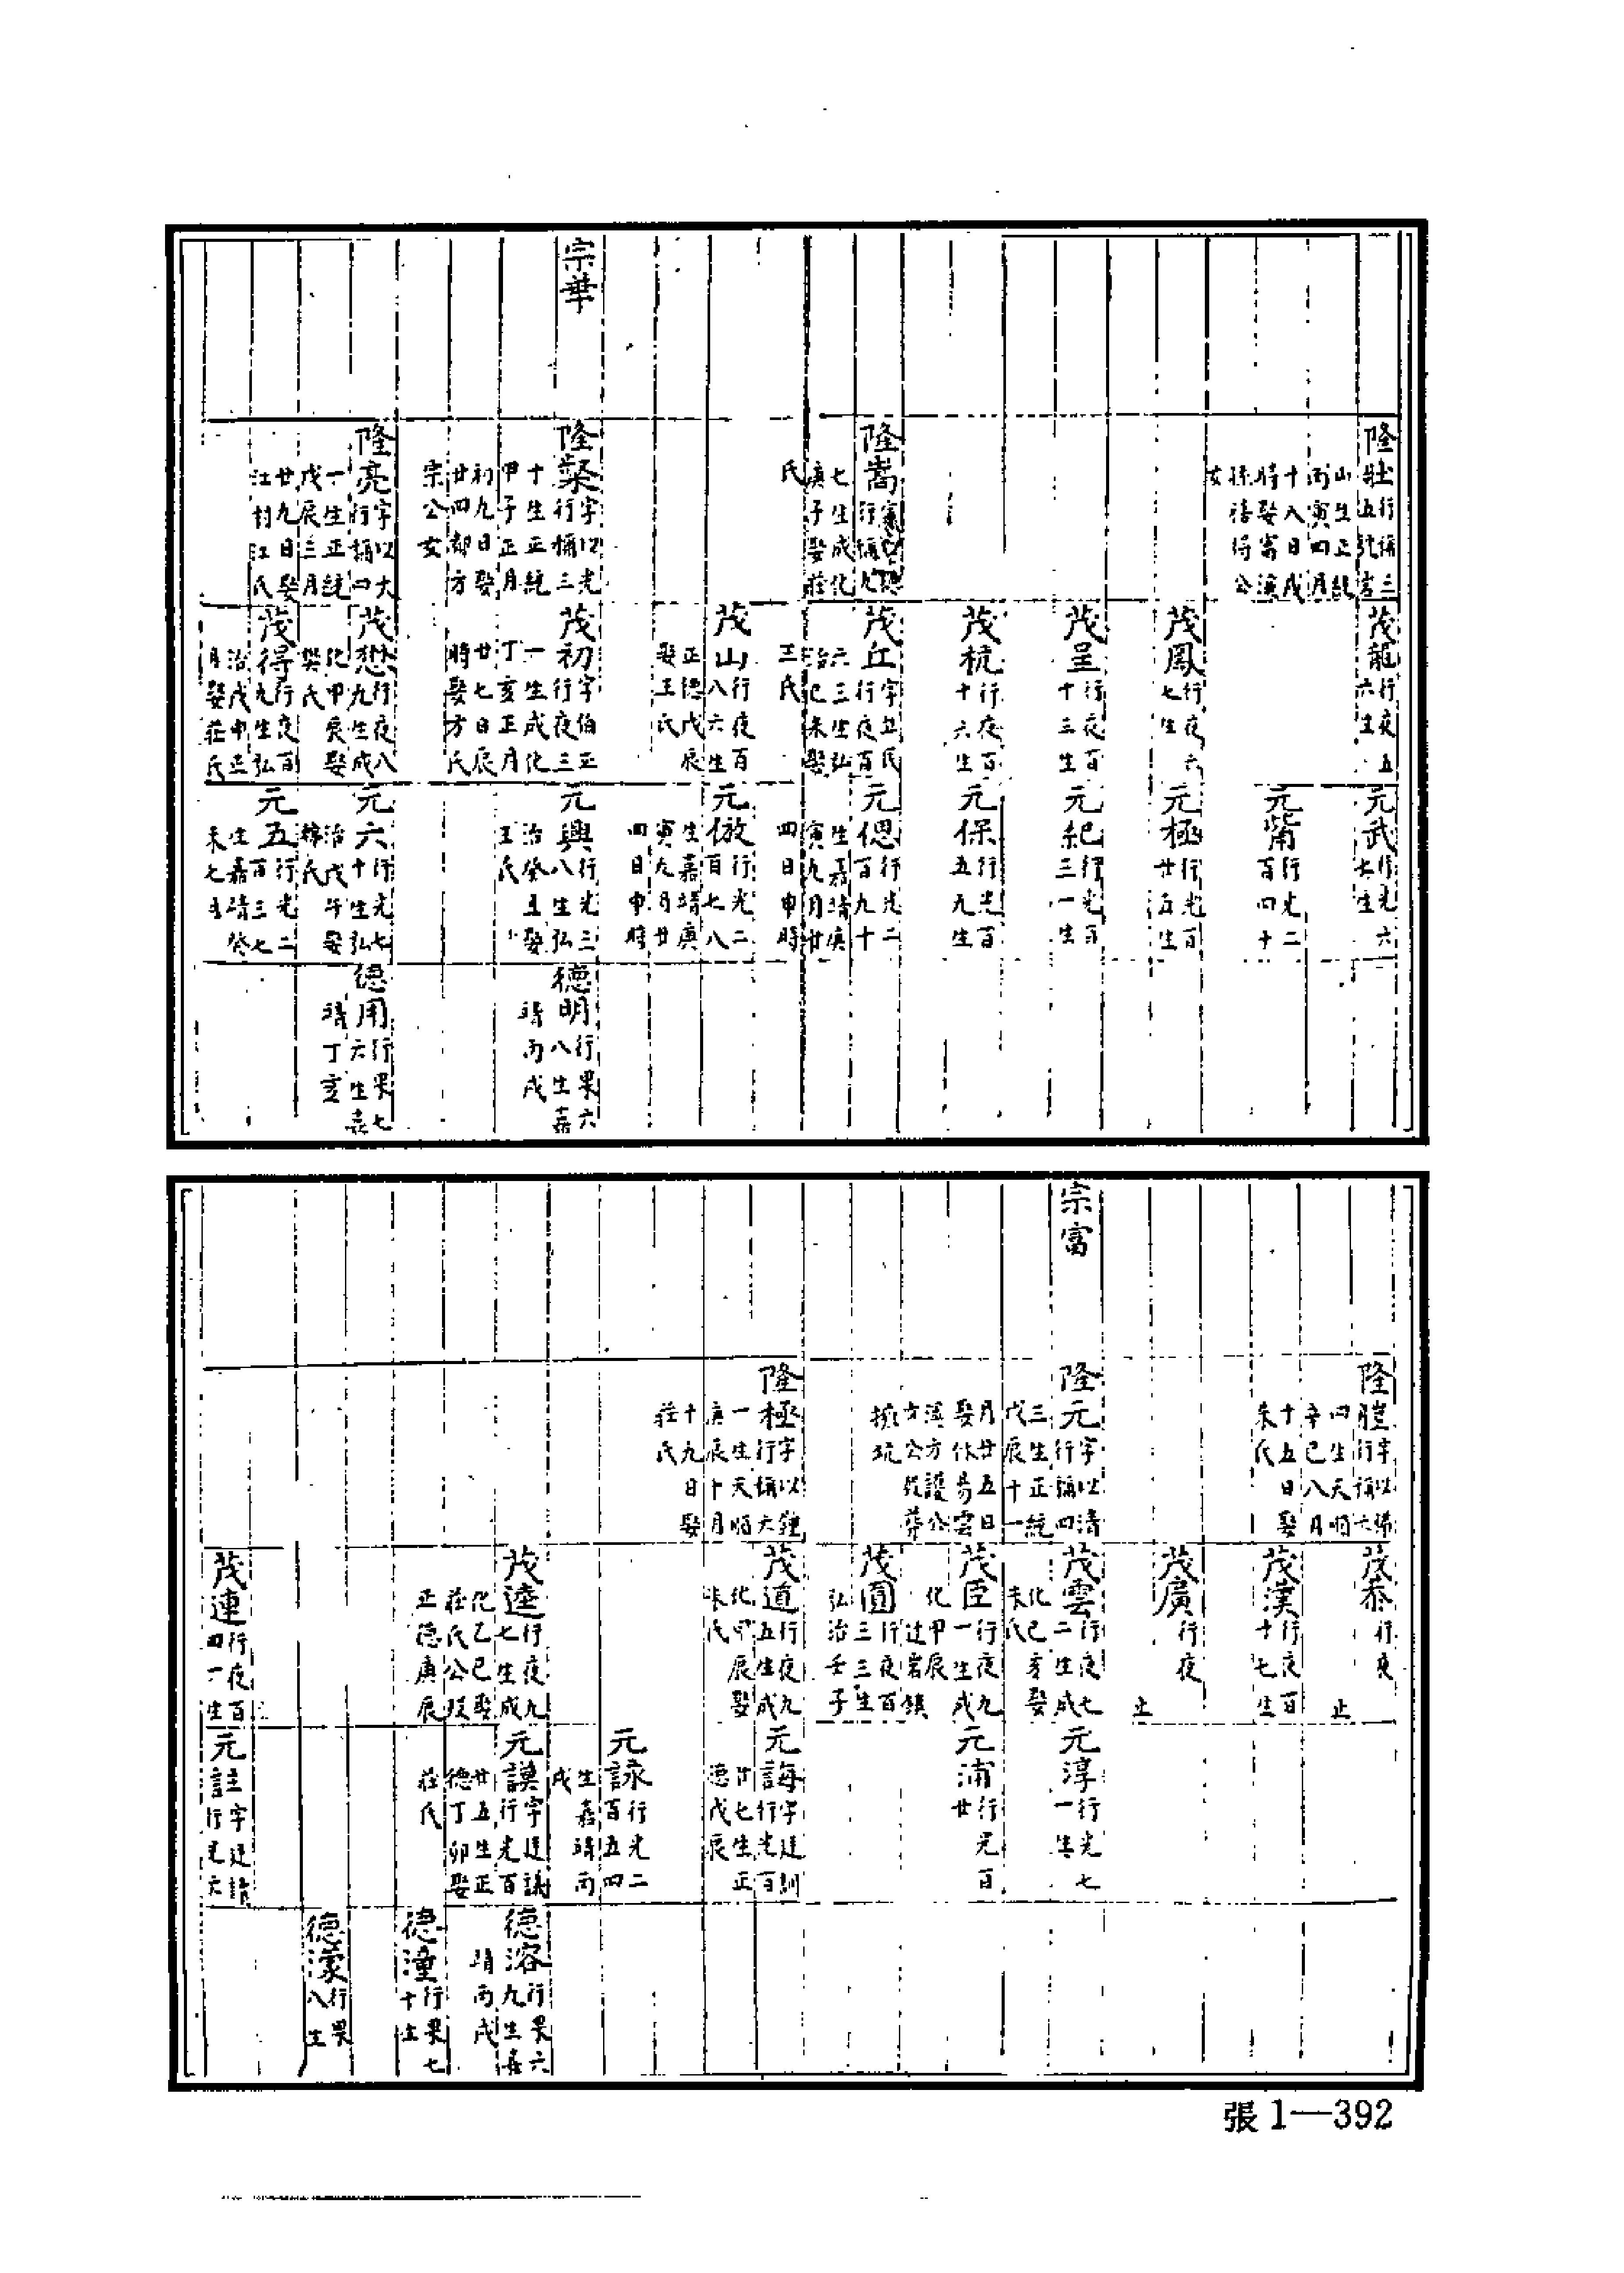 宗華
隆
行稱三
山生正統
丙寅四月
十八日戌
時娶富溪
公
女
隆嵩
七生成化
庚子娶莊
氏
隆槩字以光
行稱三
十生正統
甲子正月
初九日娶
廿四都方
宗公女
隆亮字以大
行稱四
一生正統
戊辰三月
廿九日娶
江村江氏
茂龍行夜五
六生
茂鳳行夜六
七生
茂呈行夜百
十三生
茂杭行夜百
十六生
茂丘
行夜百
六三生弘
治己未娶
王氏
茂山行夜百
八六生
正德戊辰
娶王氏
茂初字伯正
行夜三
一生成化
丁亥正月
廿七日辰
時娶方氏
茂愁行夜八
九生成
化甲辰娶
樊氏
茂得行夜百
九生弘
治戊申正
月娶莊氏
元武行光六
七生
行光二
百四十
元極行光百
廿五生
元紀行光百
三一生
元保行光百
五九生
元偲行光二
百九十
生嘉靖庚
寅九月廿
四日申時
元倣行光二
百七八
生嘉靖庚
寅九月廿
四日申時
元興行光三
八生弘
治癸丑娶
王氏
元六行光七
十生弘
治戊午娶
韓氏
元五行光二
百三七
生嘉靖癸
未七月
德明行果六
八生嘉
靖丙戌
德用行果七
六生嘉
靖丁亥
宗富
隆
行稱六
四生天順
辛巳八月
十五日娶
朱氏
隆元字以清
行稱四
三生正統
戊辰十一
月廿五日
娶休易雲
溪方護公
女公歿葬
隆極字以鍾
行稱六
一生天順
庚辰十月
十九日娶
莊氏
茂泰行夜
止
茂漢行夜百
十七生
茂廣行夜
止
茂雲行夜七
二生成
化己亥娶
朱氏
茂臣行夜九
一生成
化甲辰
過岩鎮
茂圓行夜百
三三生
弘治壬子
茂道行夜九
五生成
化甲辰娶
朱氏
茂逵行夜九
七生成
化乙巳娶
莊氏公歿
正德庚辰
茂連行夜百
四一生
元淳行光七
一生
元浦行光百
廿
元誨字廷訓
行光百
廿七生正
德戊辰
元詠行光二
百五四
生嘉靖丙
戌
元謨字廷謝
行光百
廿五生正
德丁卯娶
莊氏
元註
行光六
德溶行果六
九生嘉
靖丙戌
德潼行果七
十生
德濛行果
八生
張1—392